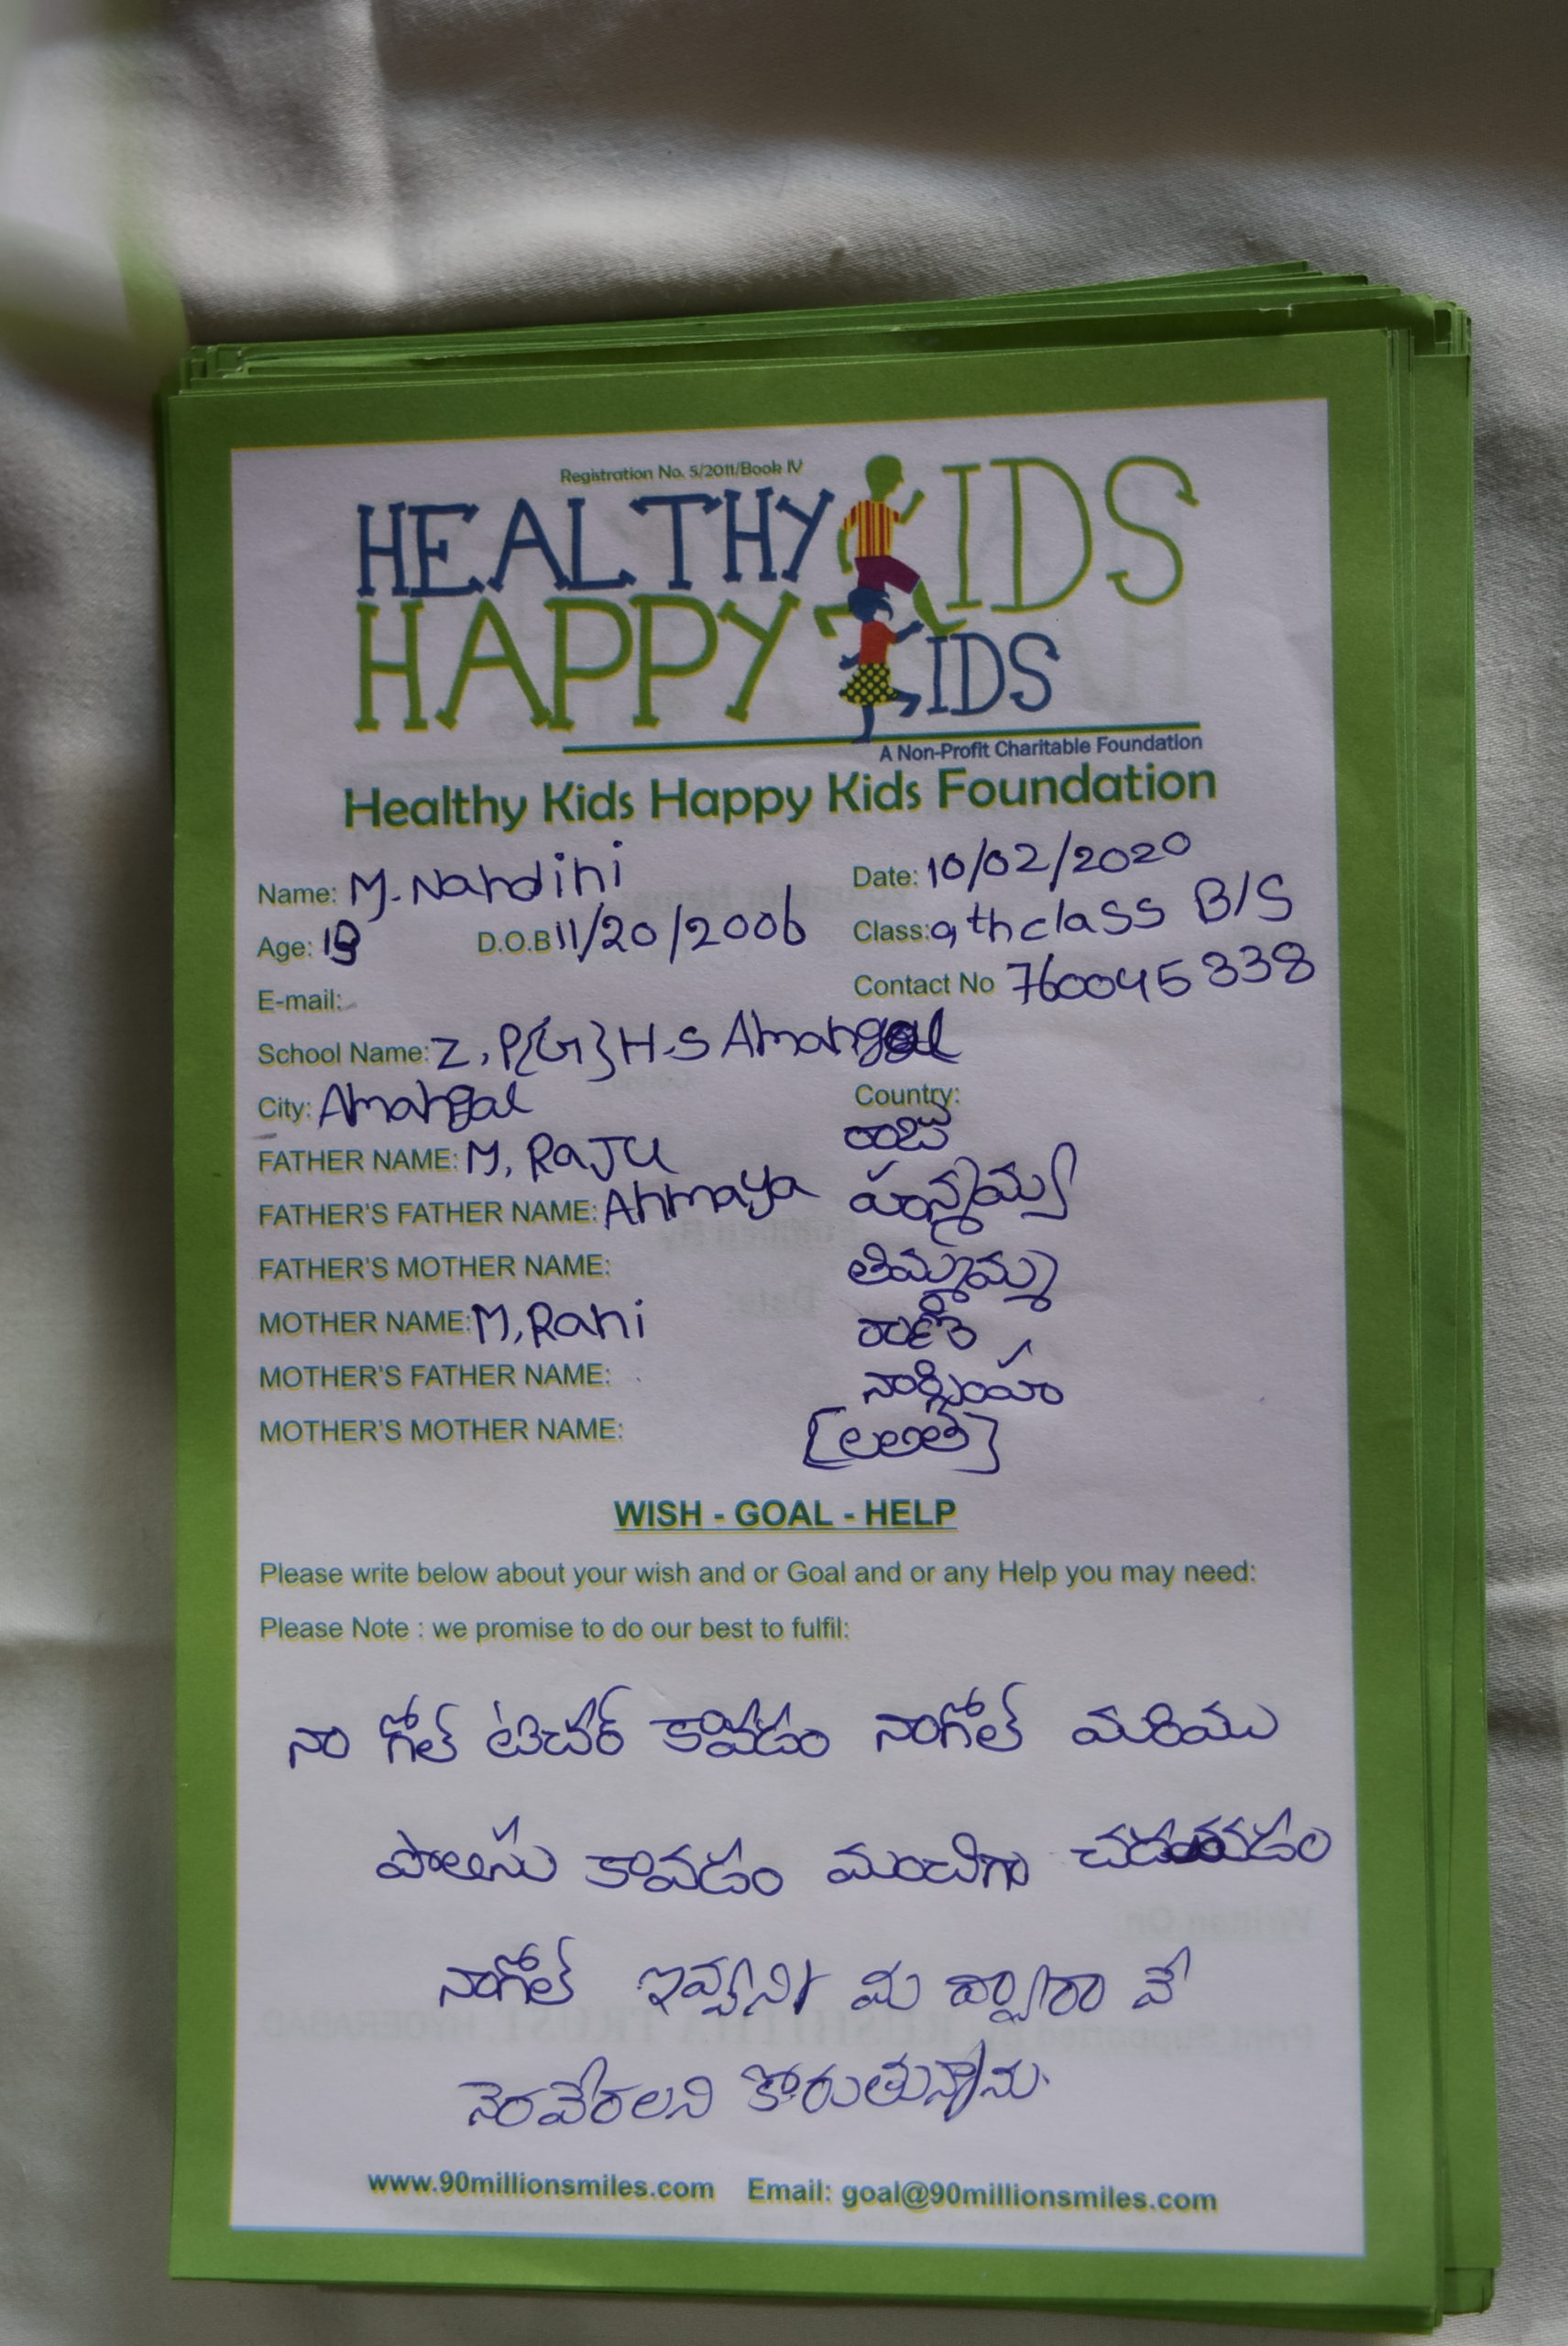 Registration No. 5/2011/Book IV
HEALTHY KIDS
HAPPY KIDS
A Non-Profit Charitable Foundation
Healthy Kids Happy Kids Foundation
Name: M. Nandini Date: 10/02/2020
Age: D.O.B 11/20/2006 Class: 9th class B/S
E-mail: Contact No 760045338
School Name: Z, P{G}H.S Amangal
City: Amangal Country:
FATHER NAME: M, RAJU రాజు
FATHER'S FATHER NAME: Anmaya
FATHER'S MOTHER NAME: తిమ్మమ్మ
MOTHER NAME: M, Rani రాణి
MOTHER'S FATHER NAME:
MOTHER'S MOTHER NAME: [లలిత]
WISH - GOAL - HELP
Please write below about your wish and or Goal and or any Help you may need:
Please Note : we promise to do our best to fulfil:
నా గోల్ టిచర్ కావడం నాగోల్ మరియు
పోలిసు కావడం మంచిగా చదవడం
నాగోల్ మి ద్వారా నే
నెరవేరలని కోరుతున్నాను.
www.90millionsmiles.com Email: goal@90millionsmiles.com